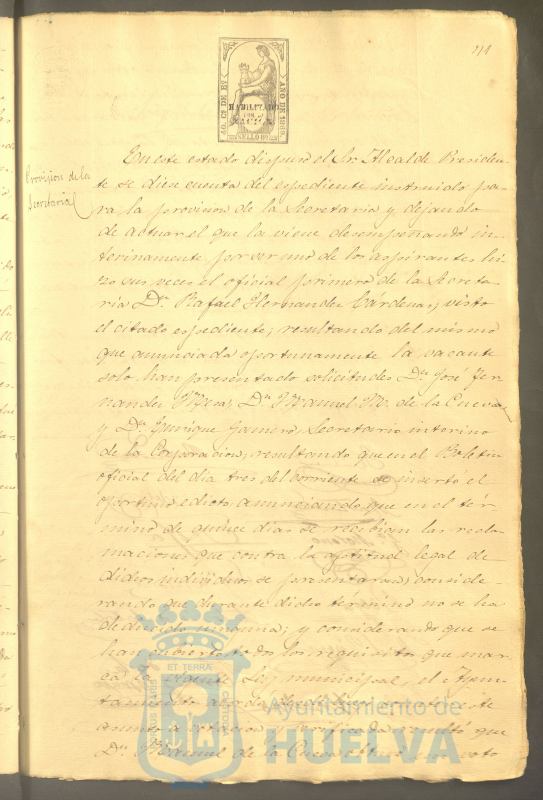 111
40 CS DE EO
AÑO DE 1869
HABILITADO
POR LA
NACION
SELLO 9º
Provision de la
Secretaria
En este estado dispuso el Sr. Alcalde Presiden-
te se diese cuenta del espediente instruido pa-
ra la provision de la Secretaria y dejando
de actuar el que la viene desempeñando in-
terinamente por ser uno de los aspirantes hi-
zo sus veces el oficial primero de la Secreta-
ria Dn. Rafael Hernandez Cárdenas, visto
el citado espediente, resultando del mismo
que anunciada oportunamente la vacante
solo han presentado solicitudes Dn. José Fer-
nandez Dn. Manuel de la Cueva
y Dn. Enrique Gamero, Secretario interino
de la Corporacion, resultando que en el Boletin
oficial del dia tres del corriente se insertó el
oportuno edicto anunciando que en el tér-
mino de quince dias se recibian las recla-
maciones que contra la aptitud legal de
dichos individuos se presentaran, conside-
rando que durante dicho término no se ha
deducido ninguna; y considerando que se
han cubierto todos los requisitos que mar-
ca la vigente Ley municipal, el Ayun-
tamiento este
asunto a votacion. Verificada resultó que
Dn. Manuel de la Cueva obtuvo un voto
ET TERRÆ
PORTUS MARIS
CUSTODIA
Ayuntamiento de
HUELVA